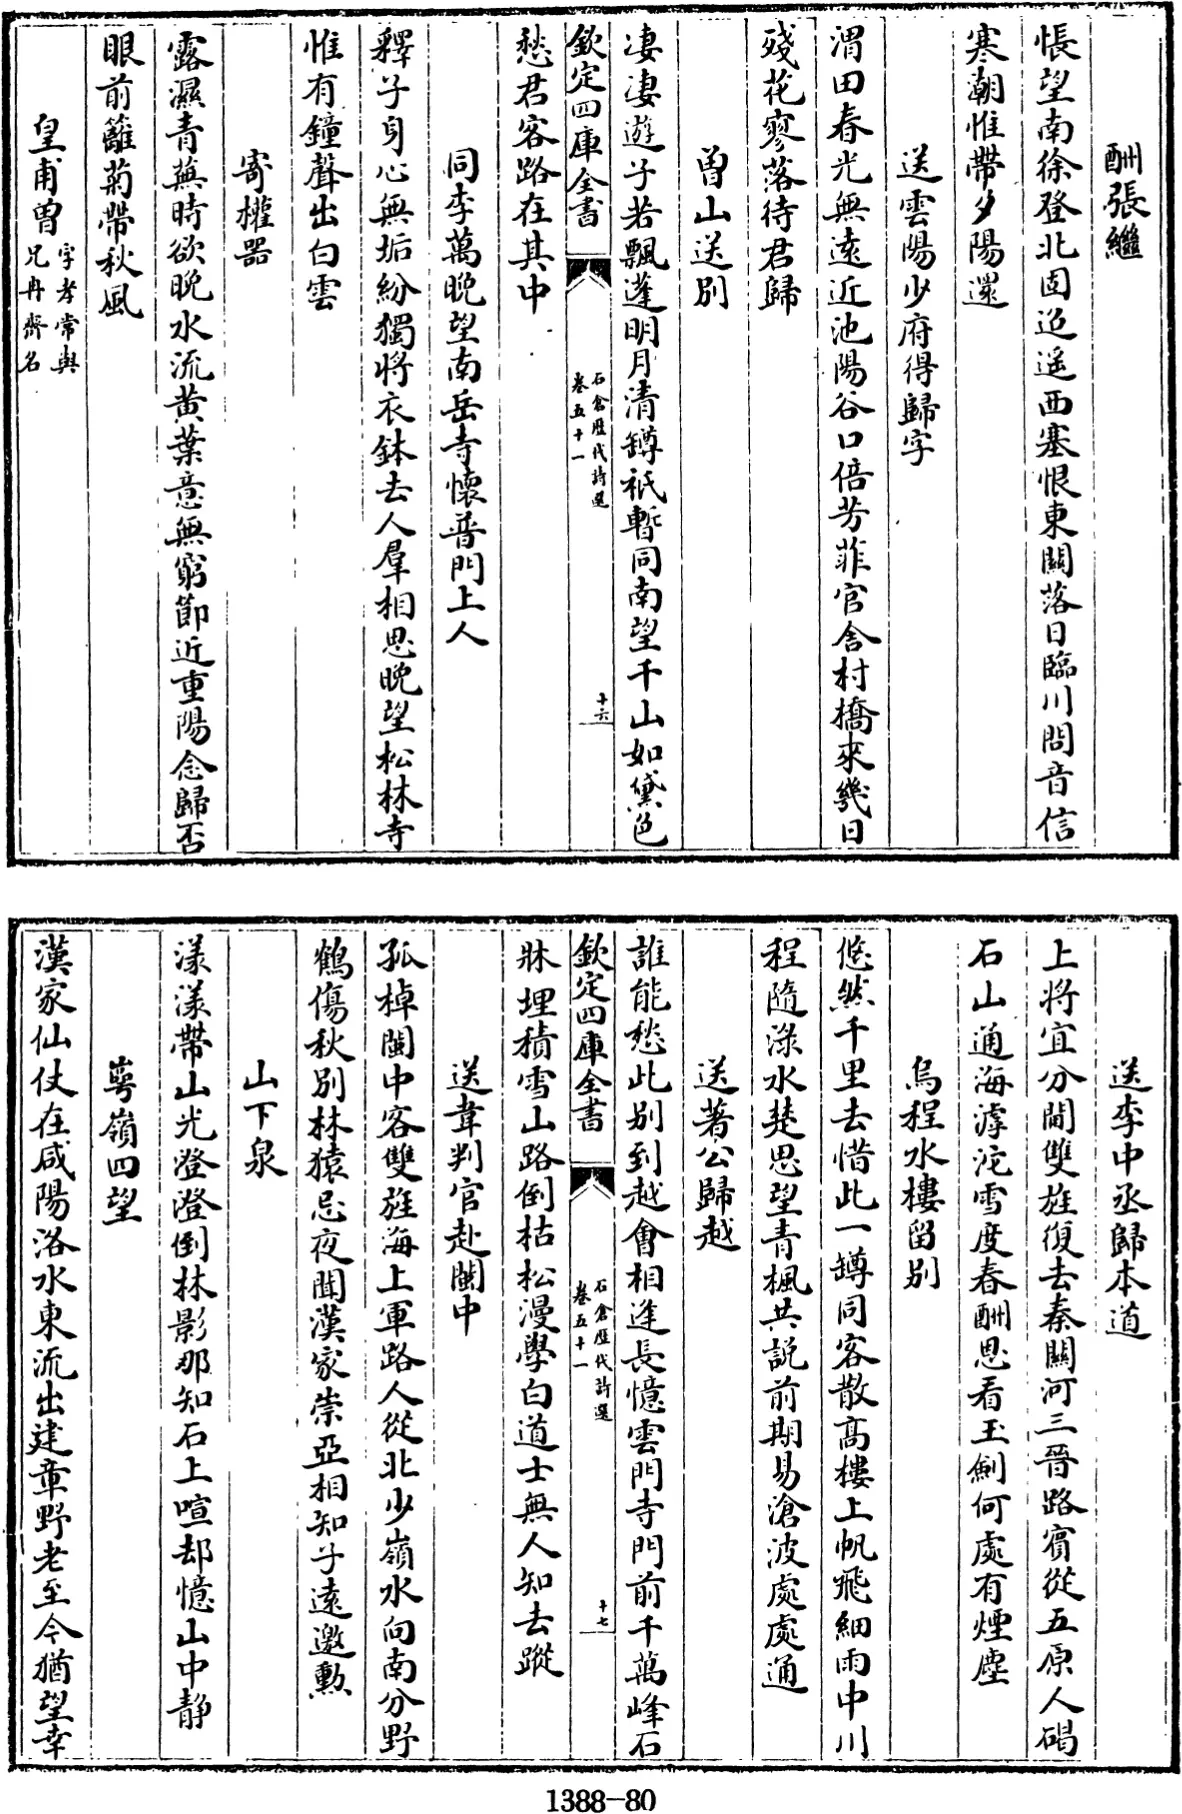 酬張繼
悵望南徐登北固迢遥西塞恨東關落日臨川問音信
寒潮惟帶夕陽還
送雲陽少府得歸字
渭田春光無遠近池陽谷口倍芳菲官舍村橋來幾日
殘花寥落待君歸
曾山送别
凄凄遊子若飄蓬明月清罇祇暫同南望千山如黛色
欽定四庫全書
石倉歴代詩選
卷五十一
十六
愁君客路在其中
同李萬晚望南岳寺懷普門上人
釋子身心無垢紛獨將衣鉢去人羣相思晚望松林寺
惟有鐘聲出白雲
寄權器
露濕青蕪時欲晚水流黄葉意無窮節近重陽念歸否
眼前籬菊帶秋風
皇甫曾
字孝常與
兄冉齊名
送李中丞歸本道
上將宜分閫雙旌復去秦關河三晉路賓從五原人碣
石山通海滹沱雪度春酬恩看玉劍何處有煙塵
烏程水樓留别
悠然千里去惜此一罇同客散高樓上帆飛細雨中川
程隨淥水楚思望青楓共說前期易滄波處處通
送著公歸越
誰能愁此别到越會相逢長憶雲門寺門前千萬峰石
欽定四庫全書
石倉歴代詩選
卷五十一
十七
牀埋積雪山路倒枯松漫學白道士無人知去蹤
送韋判官赴閩中
孤棹閩中客雙旌海上軍路人從北少嶺水向南分野
鶴傷秋别林猿忌夜聞漢家崇亞相知子遠邀勲
山下泉
漾漾帶山光澄澄倒林影那知石上喧却憶山中静
萼嶺四望
漢家仙仗在咸陽洛水東流出建章野老至今猶望幸
1388-80